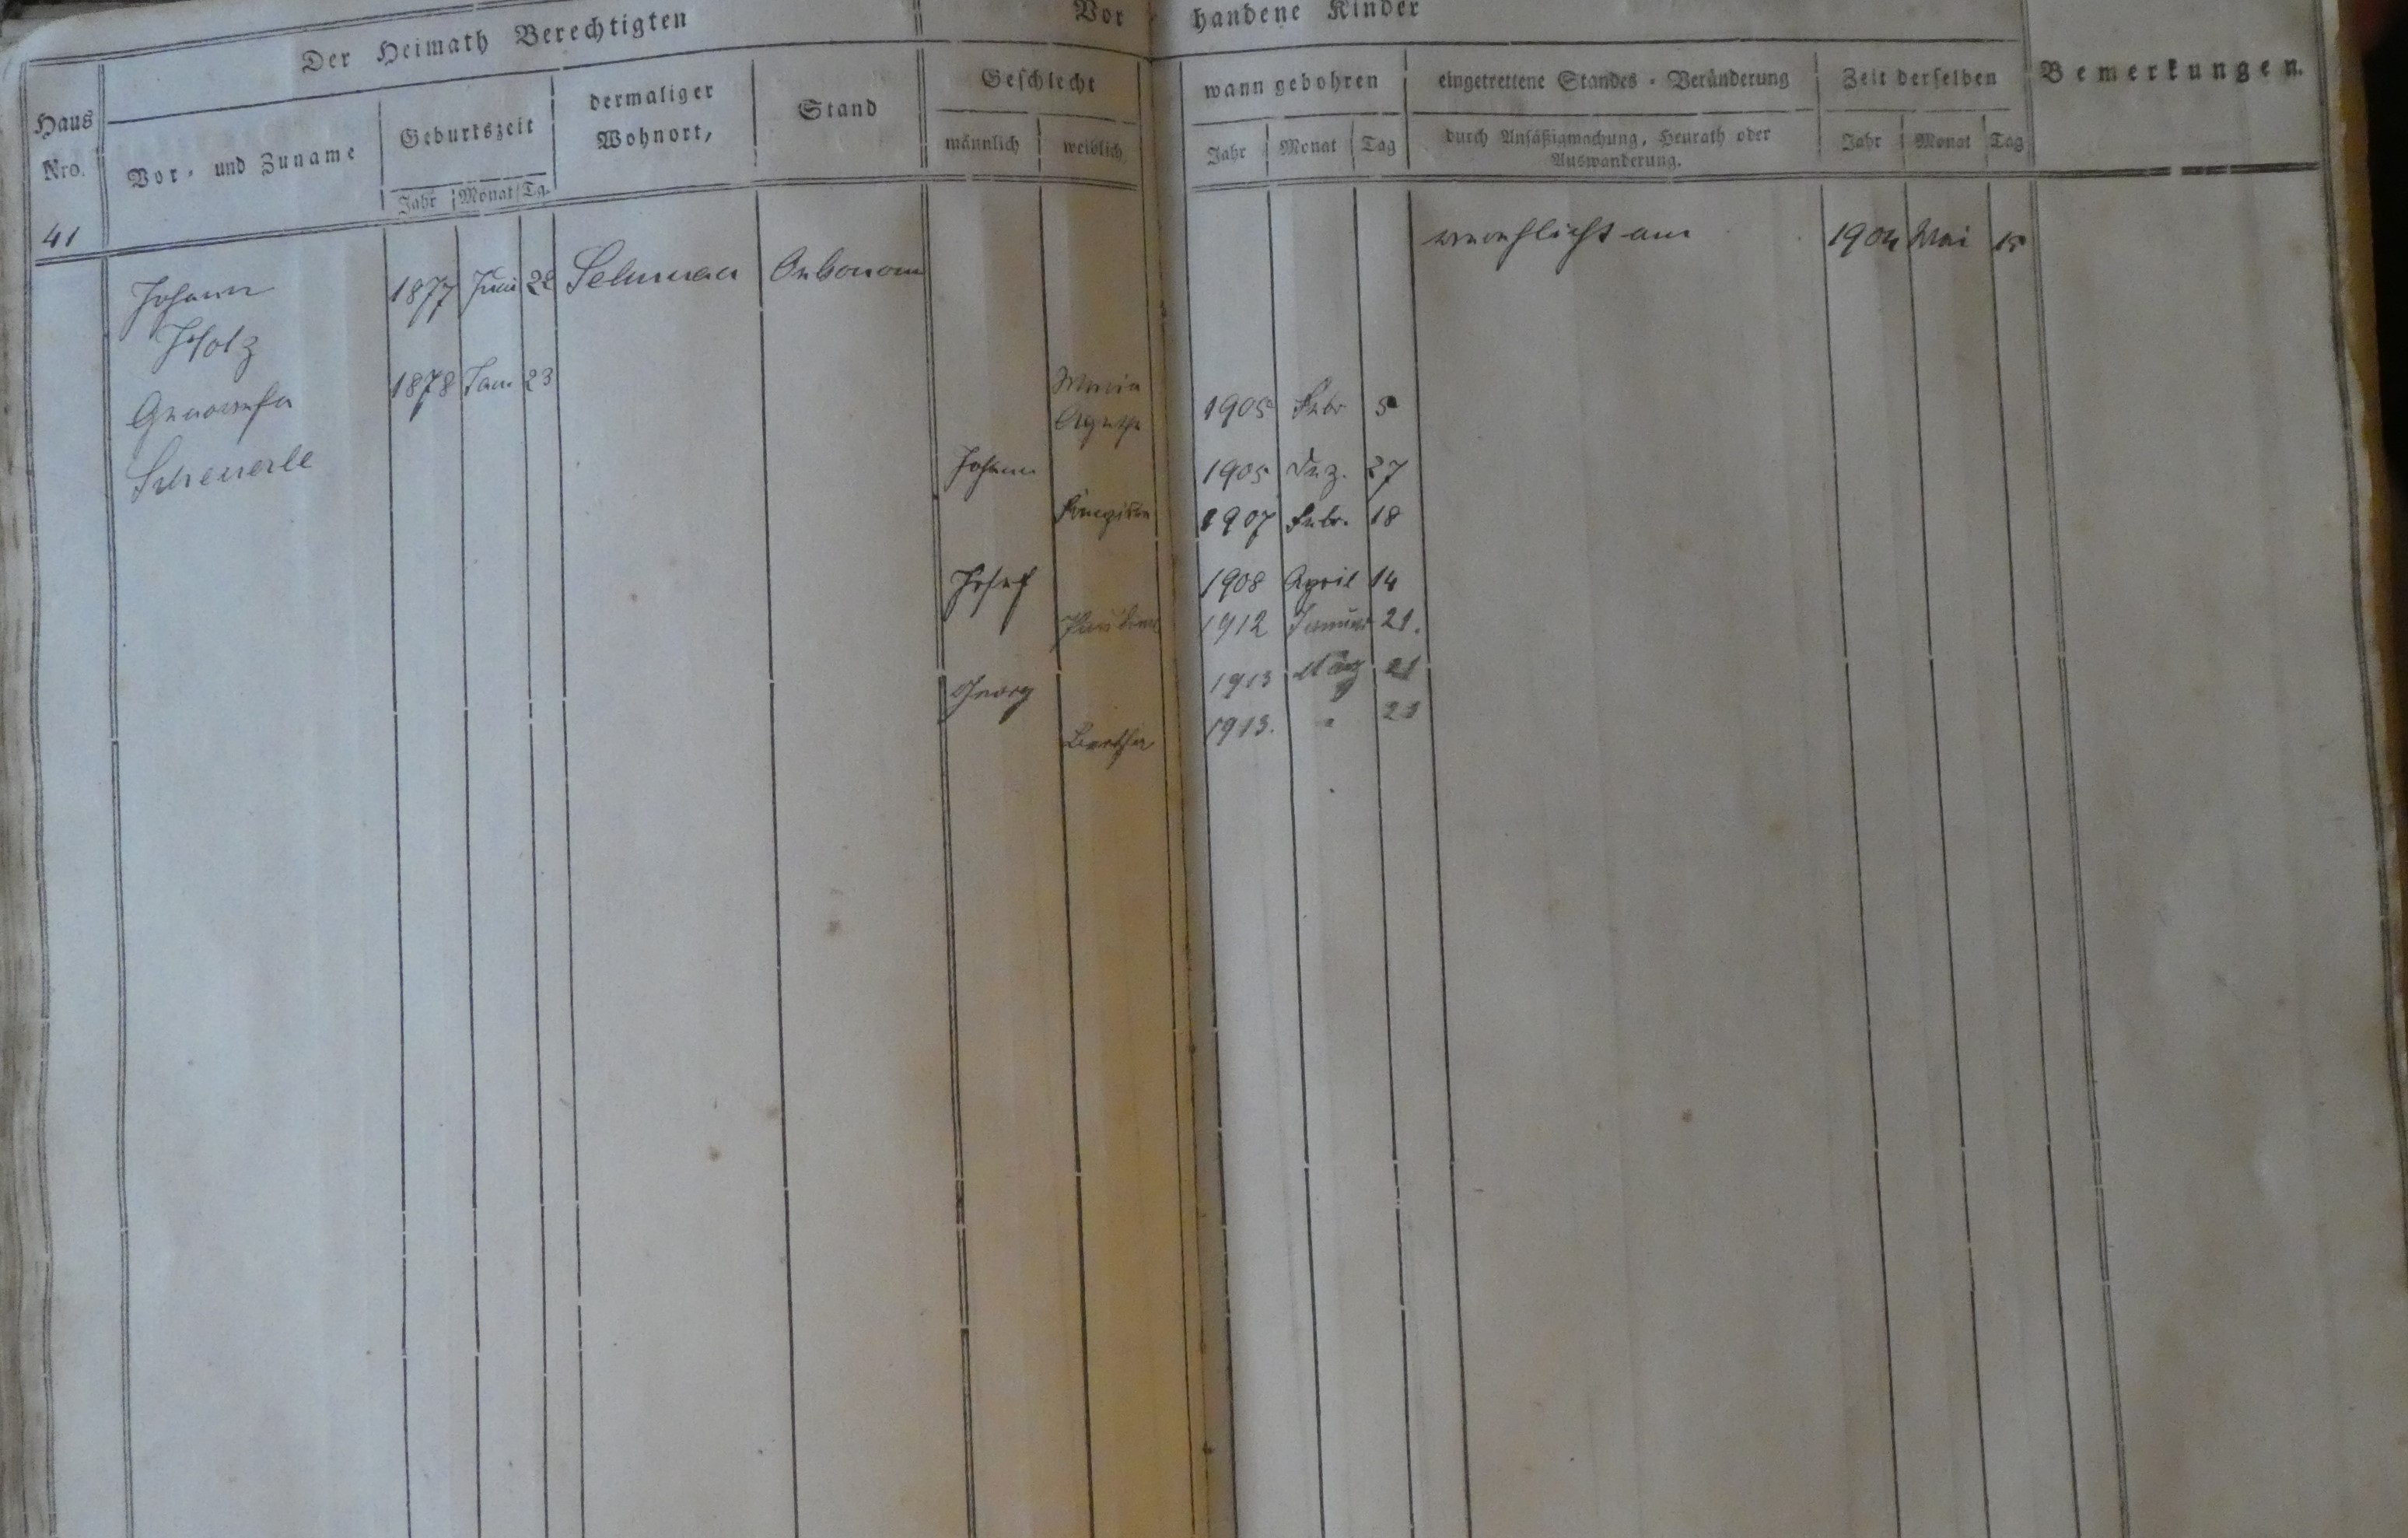 Der Heimath Berechtigten
Vor handene Kinder
Haus Nro.
Vor- und Zuname
Geburtszeit
Jahr Monat Tg.
dermaliger Wohnort,
Stand
Geschlecht
männlich weiblich
wann gebohren
Jahr Monat Tag
eingetrettene Standes-Veränderung
durch Ansäßigmachung, Heurath oder
Auswanderung.
Zeit derselben
Jahr Monat Tag
Bemerkungen.
41
verehlicht am 1904 Mai 15
Johann 1877 Juni 22 Oekonom
Holz
Genovefa 1878 Jan 23
Scheuerle
Maria
Agatha 1905 Febr 5
Johann 1905 Dez. 27
Franziska 1907 Febr. 18
Josef 1908 April 14
Pauline 1912 Januar 21.
Georg 1913 März 21
Bertha 1913. " 21